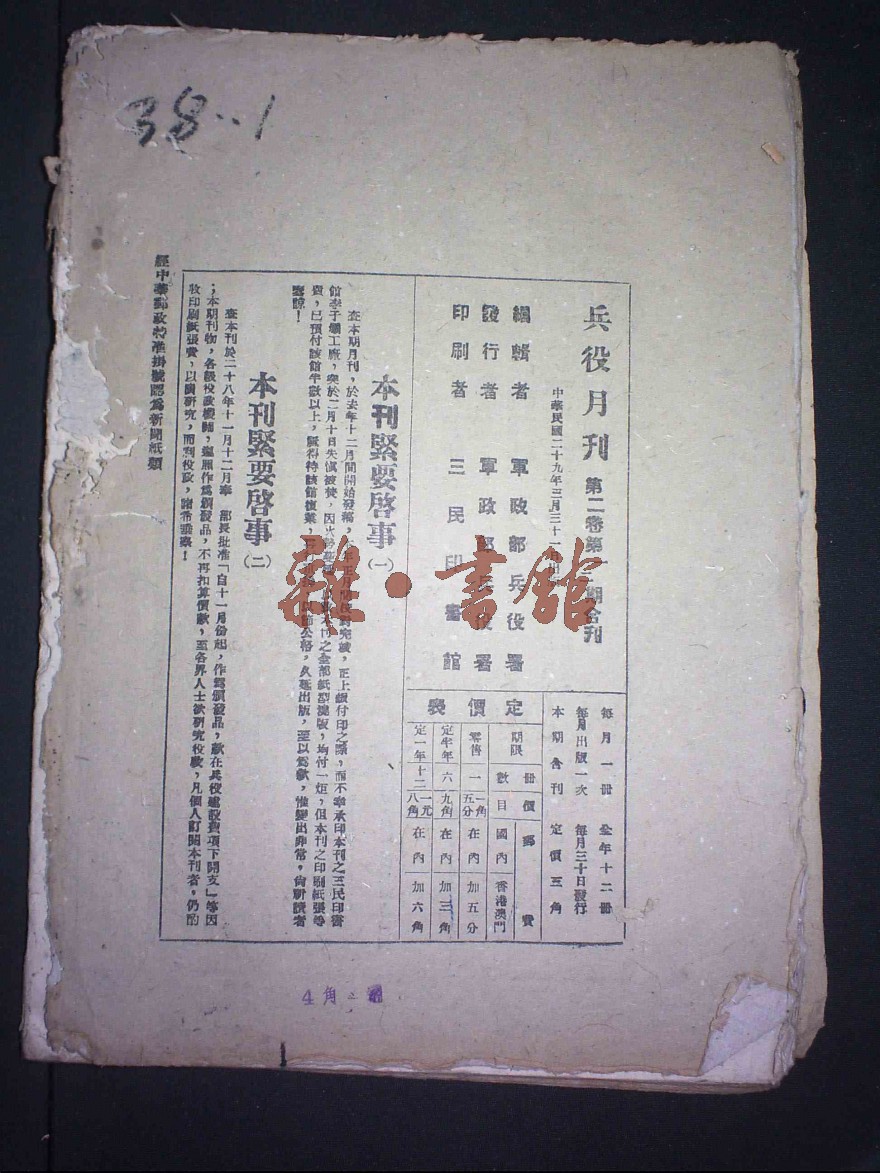 38..1
兵役月刊 第二卷第 期合刊
中華民國二十九年三月三十一日出
編輯者 軍政部兵役署
發行者 軍政部兵役署
印刷者 三民印書館
每月一冊 全年十二冊
每月出版一次 每月三十日發行
本期合刊 定價三角
定價表
期限 冊數 價目 郵費
國內 香港澳門
零售 一 一角五分 在內 加五分
定半年 六 九角 在內 加三角
定一年 十二 一元八角 在內 加六角
本刊緊要啓事(一)
查本期月刊,於去年十二月間開始發稿, 正月間校對完竣,正上版付印之際,而不幸承印本刊之三民印書
館李子壩工廠,突於二月十日失慎被焚,因火勢 本刊之全部紙型澆版,均付一炬,但本刊之印刷紙張等
費,已預付該館半數以上,祇得待該館復業, 公帑,久延出版,至以爲歉,惟變出非常,尚祈讀者
鑒諒!
本刊緊要啓事(二)
查本刊於二十八年十一月十二月奉 部長批准「自十一月份起,作爲頒發品,款在兵役建設費項下開支」等因
;本期刊物,各級役政機關,繼屬作爲頒發品,不再扣算價款,至各界人士欲研究役政,凡個人訂閱本刊者,仍酌
收印刷紙張費,以 研究,而利役政,諸希垂察!
經中華郵政特准掛號認爲新聞紙類
雜·書館
4角